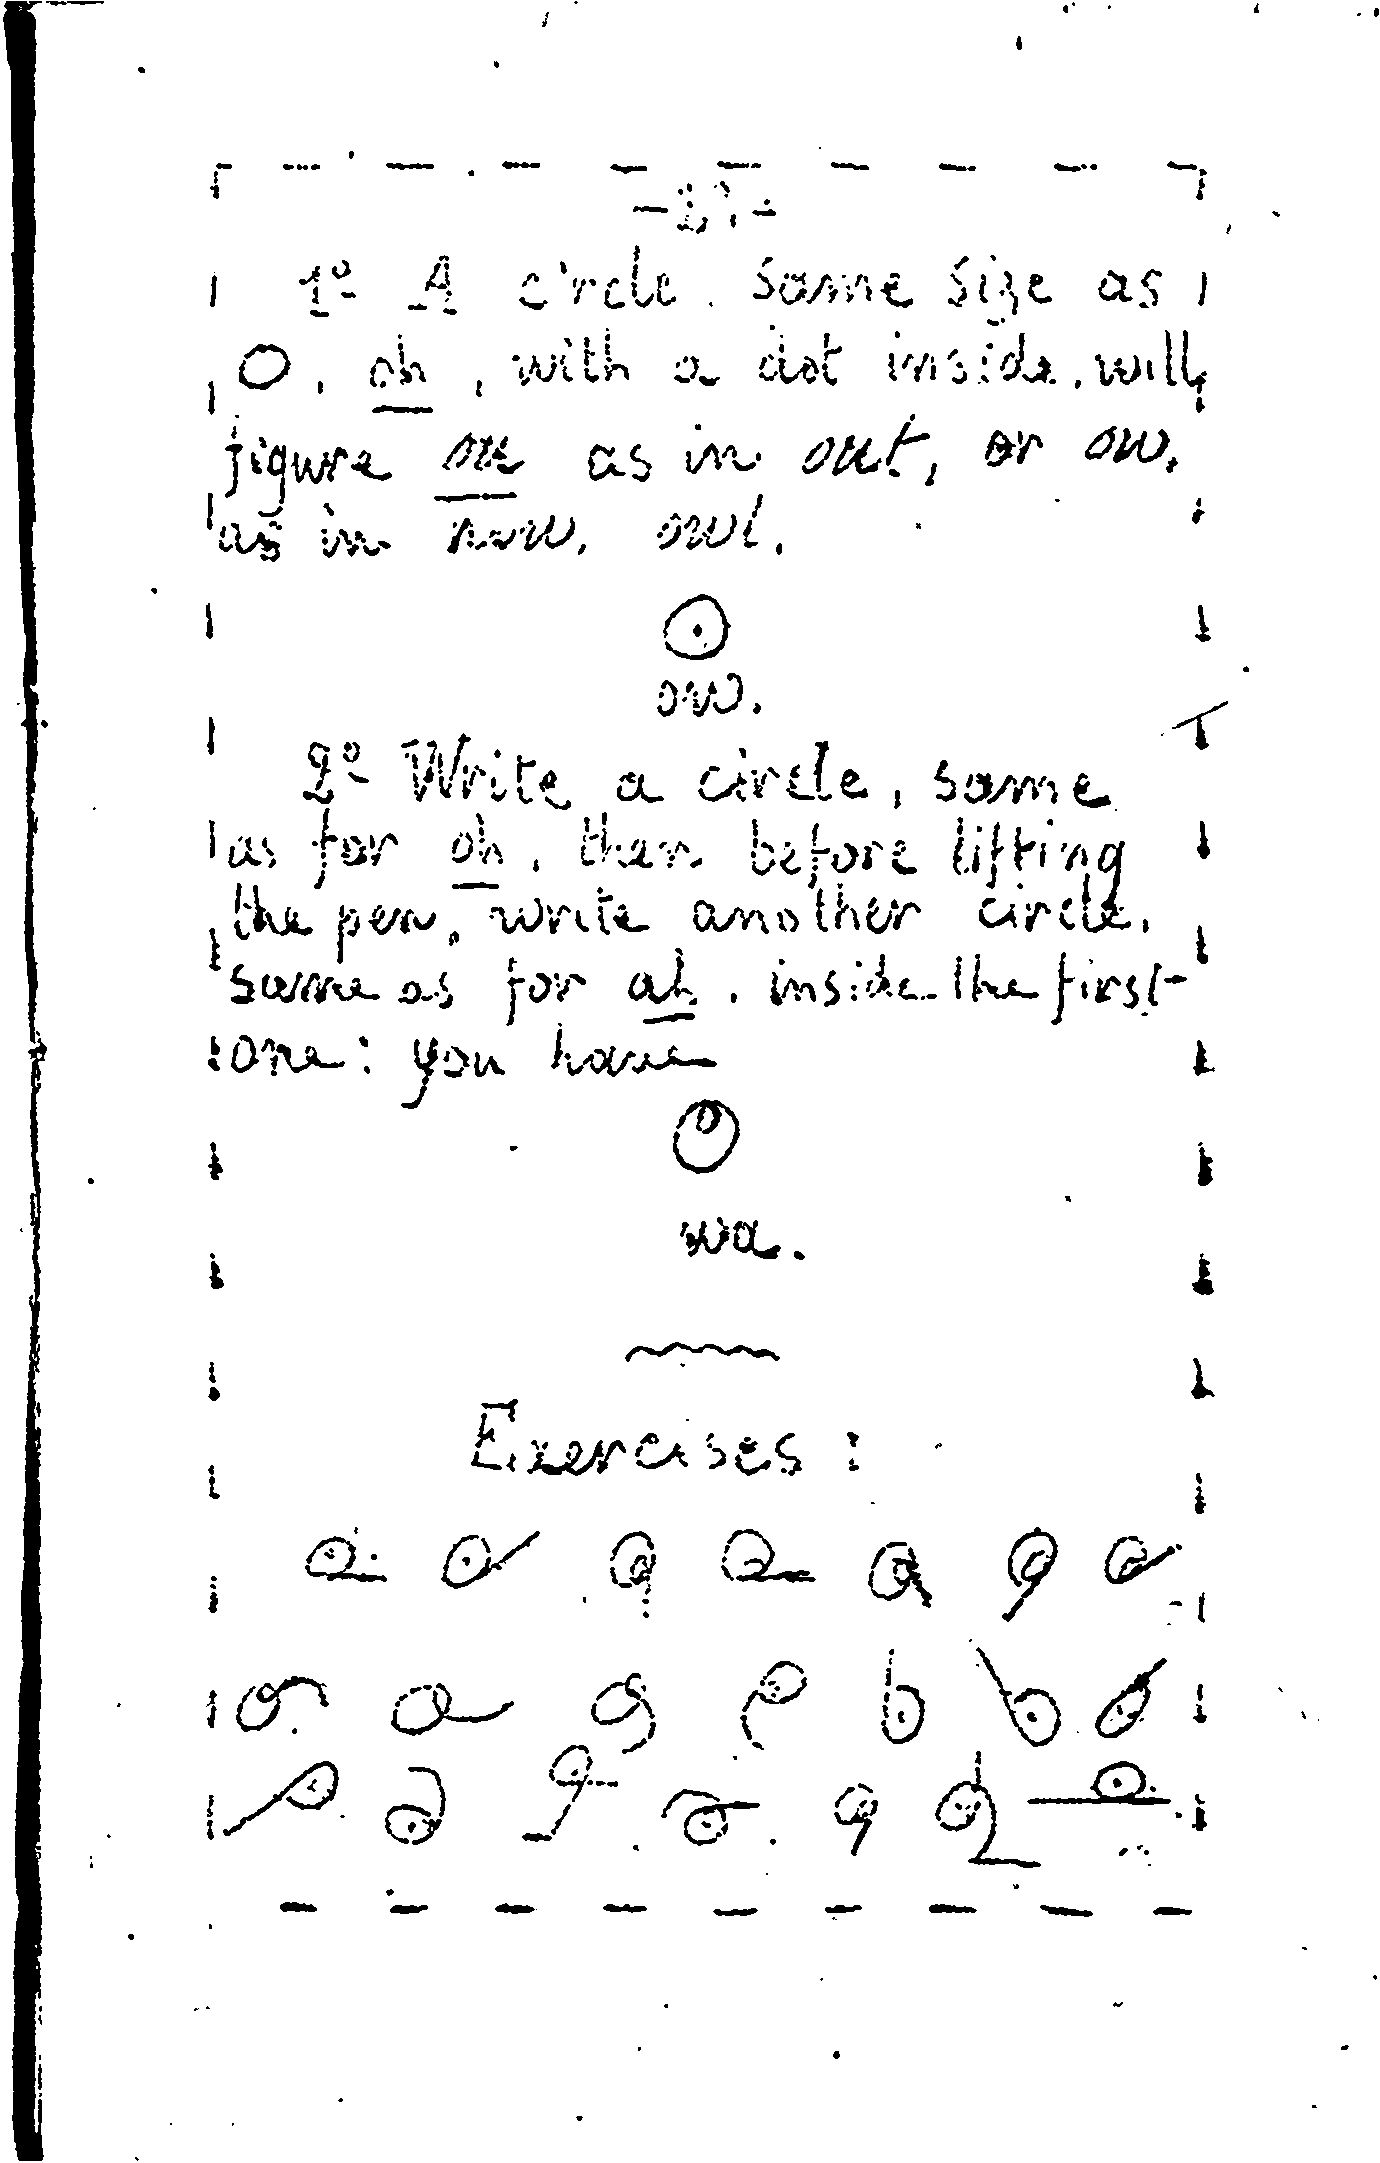 1º A circle, same size as
O, oh, with a dot inside, will
figure ou as in out, or ow,
as in now, owl.
ow.
2º Write a circle, same
as for oh, then before lifting
the pen, write another circle,
same as for ah, inside the first
one: you have
wa.
Exercises: